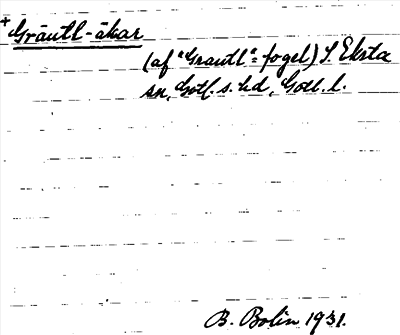 + Gräutl-åkar
(af "Grautl" = fogel) S. Eksta
sn, Gotl. s. hd, Gotl. l.
B. Bolin 1931.